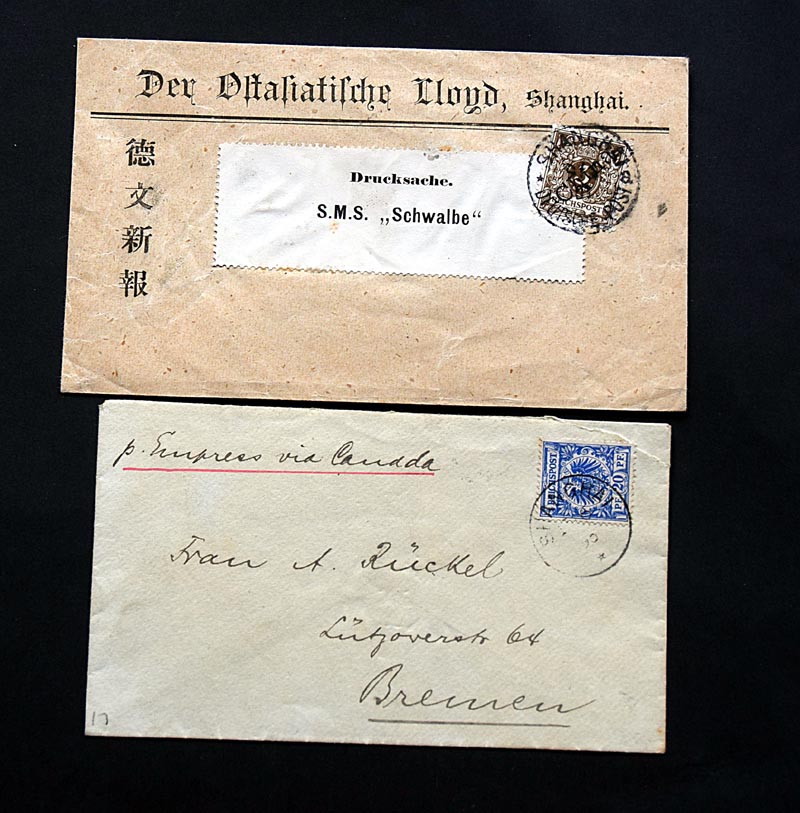 Der Ostasiatische Lloyd, Shanghai.
德文新報
Drucksache.
S.M.S. „Schwalbe“
SHANGHAI
DEUTSCHE POST
3
REICHSPOST
p. Empress via Canada
REICHSPOST
20 PF.
SHANGHAI
Frau A. Rückel
Lützoverstr 64
Bremen
17